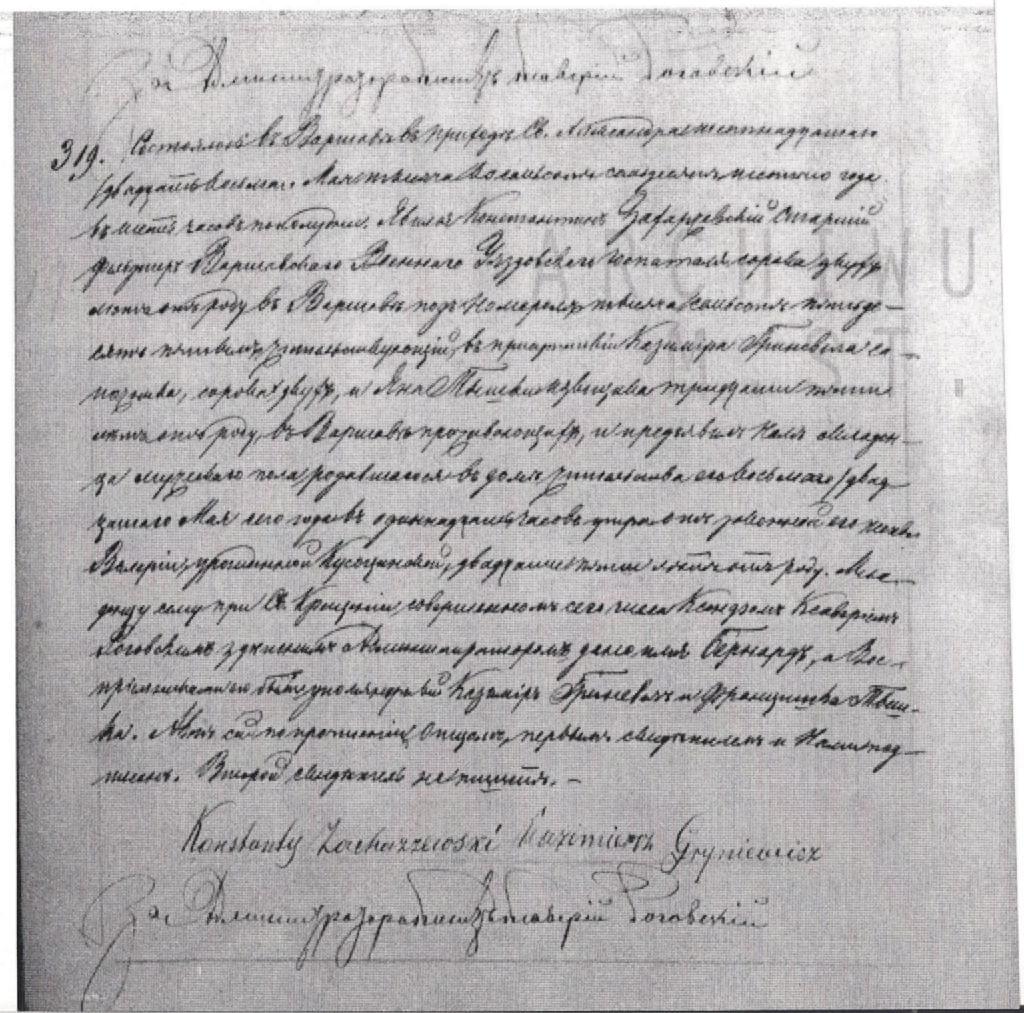 За Администратора Ксендзъ Ксаверій Роговскій
319. Состоялось въ Варшавѣ въ приходѣ Св. Александра шестнадцатаго
/двадцать восьмаго Мая тысяча восемьсотъ года
въ шесть часовъ пополудни. Явился Константинъ Захаржевскій Старшій
фельдшеръ Варшавскаго Военнаго Уяздовскаго Госпиталя сорока двухъ
лѣтъ отъ роду въ Варшавѣ подъ Номеромъ тысяча восемьсотъ пятьде-
сятъ жительствующій, въ присутствіи Казиміра Гриневича са-
пожника, сорока двухъ, и Яна тридцати пяти
лѣтъ отъ роду, въ Варшавѣ проживающихъ, и предъявилъ Намъ младен-
ца мужескаго пола, родившагося въ домѣ жительства его восьмаго /двад-
цатаго Мая сего года въ одиннадцать часовъ утра отъ законной его жены
Валеріи, урожденной двадцати пяти лѣтъ отъ роду. Мла-
денцу сему при Св. Крещеніи, совершенномъ сего числа Ксендзомъ Ксаверіемъ
Роговскимъ здѣшнимъ Администраторомъ дано имя Бернардъ, а Вос-
пріемниками его были упомянутый Казиміръ Гриневичъ и Францишка Тыш-
ка. Актъ сей по прочтеніи Отцомъ, первымъ свидѣтелемъ и Нами под-
писанъ. Второй свидѣтель не пишетъ. –
Konstanty Zacharzewski Kazimierz Gryniewicz
За Администратора Ксендзъ Ксаверій Роговскій